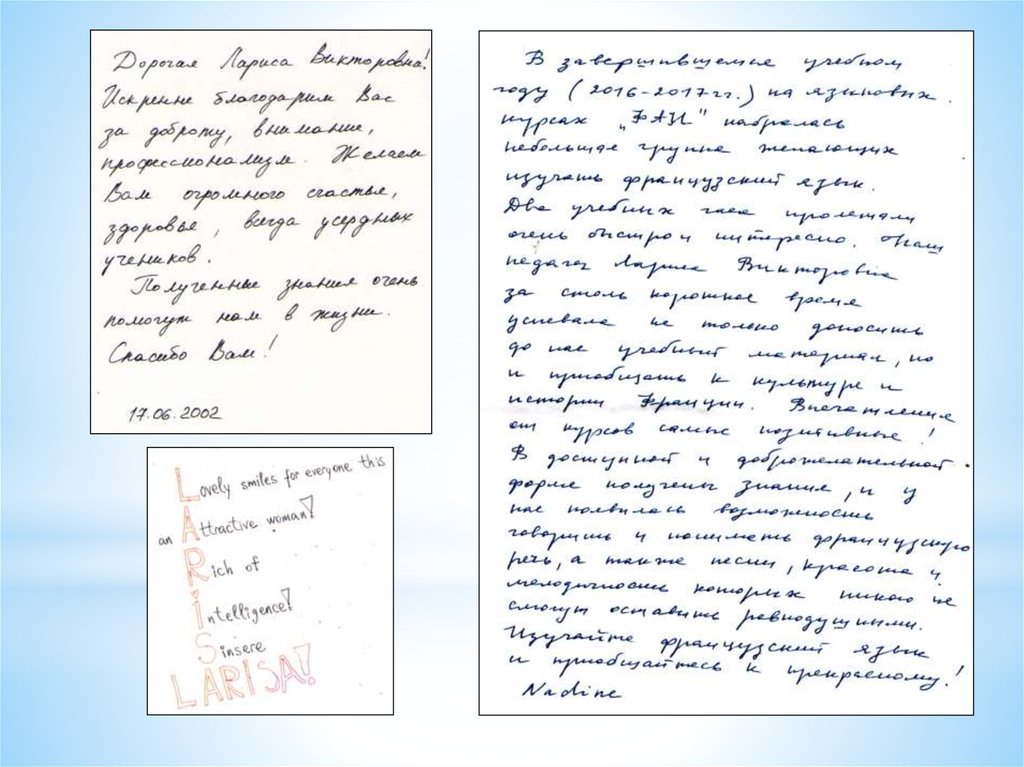 Дорогая Лариса Викторовна!
Искренне благодарим Вас
за доброту, внимание,
профессионализм. Желаем
Вам огромного счастья,
здоровья, всегда усердных
учеников.
Полученные знания очень
помогут нам в жизни.
Спасибо Вам!
17.06.2002
Lovely smiles for everyone this
an Attractive woman!
Rich of
intelligence!
Sinsere
LARISA!
В завершившемся учебном
году (2016-2017 гг.) на языковых
курсах „ФАЗИ" набралась
небольшая группа желающих
изучать французский язык.
Два учебных часа пролетали
очень быстро и интересно. Наш
педагог Лариса Викторовна
за столь короткое время
успевала не только доносить
до нас учебный материал, но
и приобщать к культуре и
истории Франции. Впечатления
от курсов самые позитивные!
В доступной и доброжелательной
форме получены знания, и у
нас появилась возможность
говорить и понимать французскую
речь, а также песни, красота и
мелодичность которых никого не
смогут оставить равнодушными.
Изучайте французский язык
и приобщайтесь к прекрасному!
Nadine